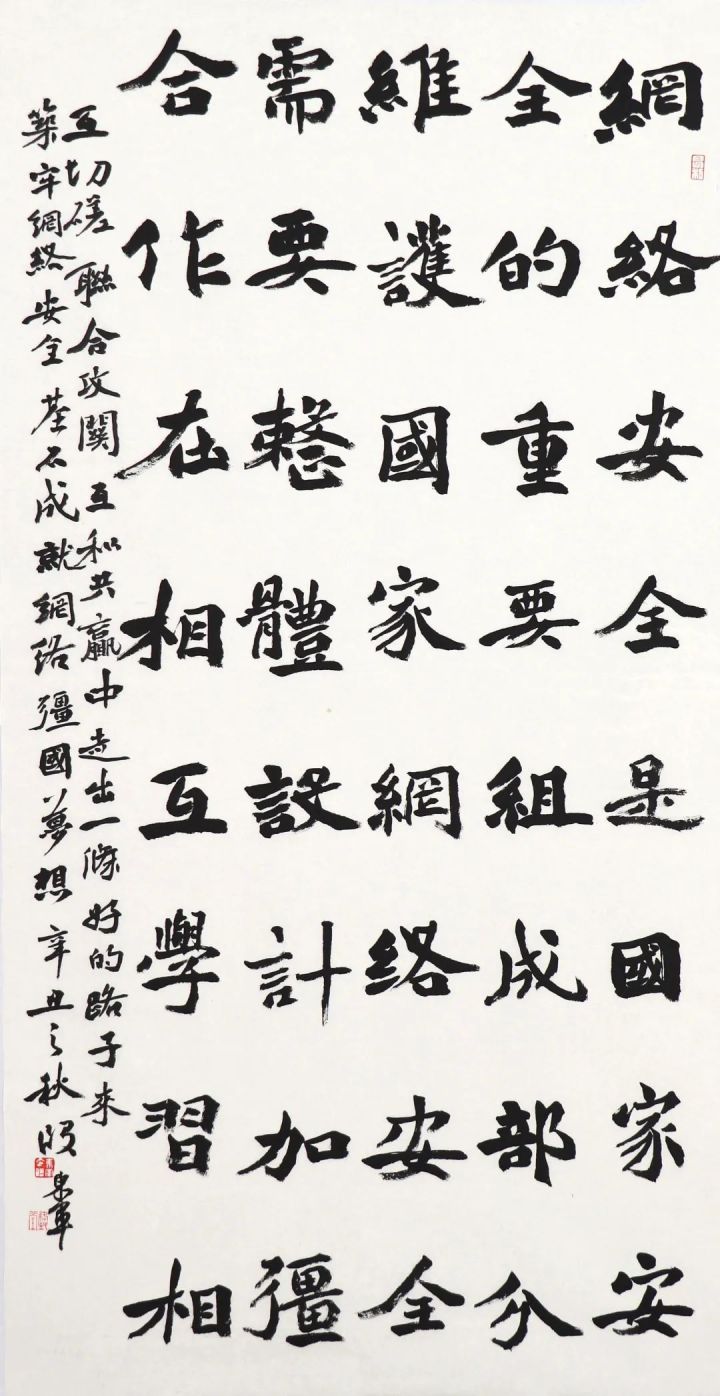 網絡安全是國家安
全的重要組成部分
維護國家網絡安全
需要整體設計加彊
合作在相互學習相
互切磋聯合攻關互和共贏中走出一條好的路子來
築牢網絡安全基石成就網絡彊國夢想辛丑之秋